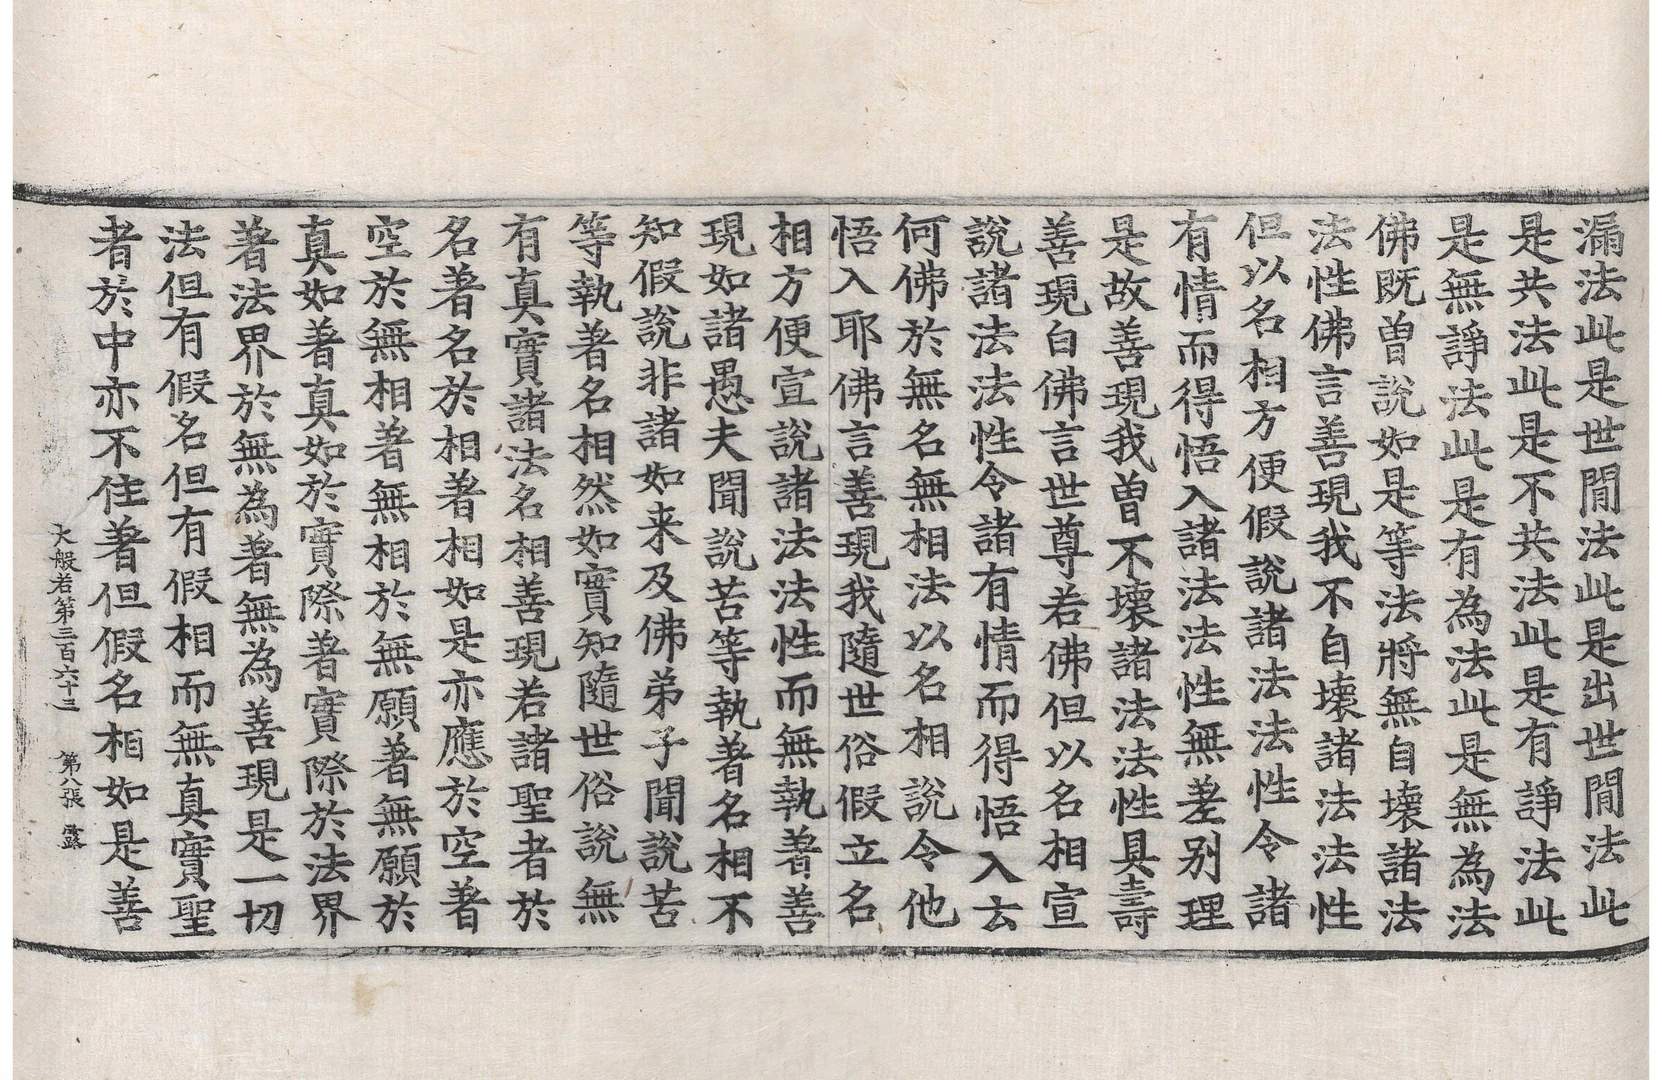 漏法此是世間法此是出世間法此
是共法此是不共法此是有諍法此
是無諍法此是有為法此是無為法
佛既曾說如是等法將無自壞諸法
法性佛言善現我不自壞諸法法性
但以名相方便假說諸法法性令諸
有情而得悟入諸法法性無差別理
是故善現我曾不壞諸法法性具壽
善現白佛言世尊若佛但以名相宣
說諸法法性令諸有情而得悟入云
何佛於無名無相法以名相說令他
悟入耶佛言善現我隨世俗假立名
相方便宣說諸法法性而無執著善
現如諸愚夫聞說苦等執著名相不
知假說非諸如来及佛弟子聞說苦
等執著名相然如實知隨世俗說無
有真實諸法名相善現若諸聖者於
名著名於相著相如是亦應於空著
空於無相著無相於無願著無願於
真如著真如於實際著實際於法界
著法界於無為著無為善現是一切
法但有假名但有假相而無真實聖
者於中亦不住著但假名相如是善
大般若第三百六十三 第八張 露